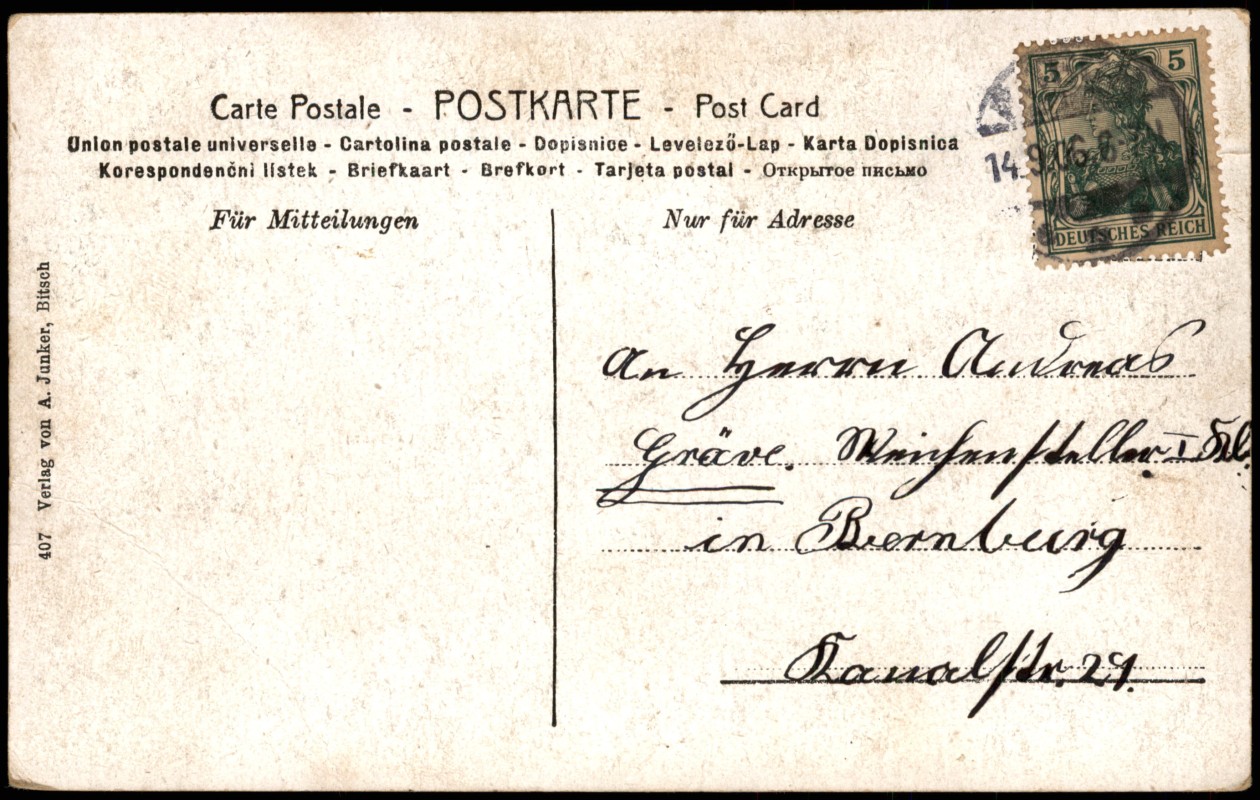 Carte Postale - POSTKARTE - Post Card
Union postale universelle - Cartolina postale - Dopisnice - Levelező-Lap - Karta Dopisnica
Korespondenčni listek - Briefkaart - Brefkort - Tarjeta postal - Открытое письмо
Für Mitteilungen
Nur für Adresse
5 5
DEUTSCHES REICH
14.9.06. 8-
An Herrn Andreas
Gräve. Weichensteller I Kl.
in Bernburg
Kanalstr. 21.
407 Verlag von A. Junker, Bitsch